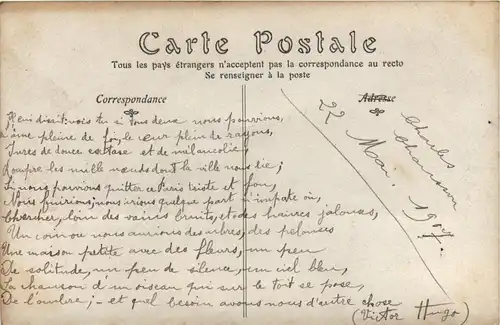 Carte Postale
Tous les pays étrangers n'acceptent pas la correspondance au recto
Se renseigner à la poste
Correspondance
Adresse
si tous deux nous pouvions,
L'âme pleine de foi, le cœur plein de rayons,
Ivres de douce extase et de mélancolie,
Rompre les mille nœuds dont la ville nous lie;
Si nous pouvions quitter ce Paris triste et fou,
Nous fuirions; nous irions quelque part n'importe où,
Chercher, loin des vains bruits, et des haines jalouses,
Un coin où nous aurions des arbres, des pelouses
Une maison petite avec des fleurs, un peu
De solitude, un peu de silence, un ciel bleu,
La chanson d'un oiseau qui sur le toit se pose,
De l'ombre; - et quel besoin avons nous d'autre chose
(Victor Hugo)
Charles
22 Mai. 1907.